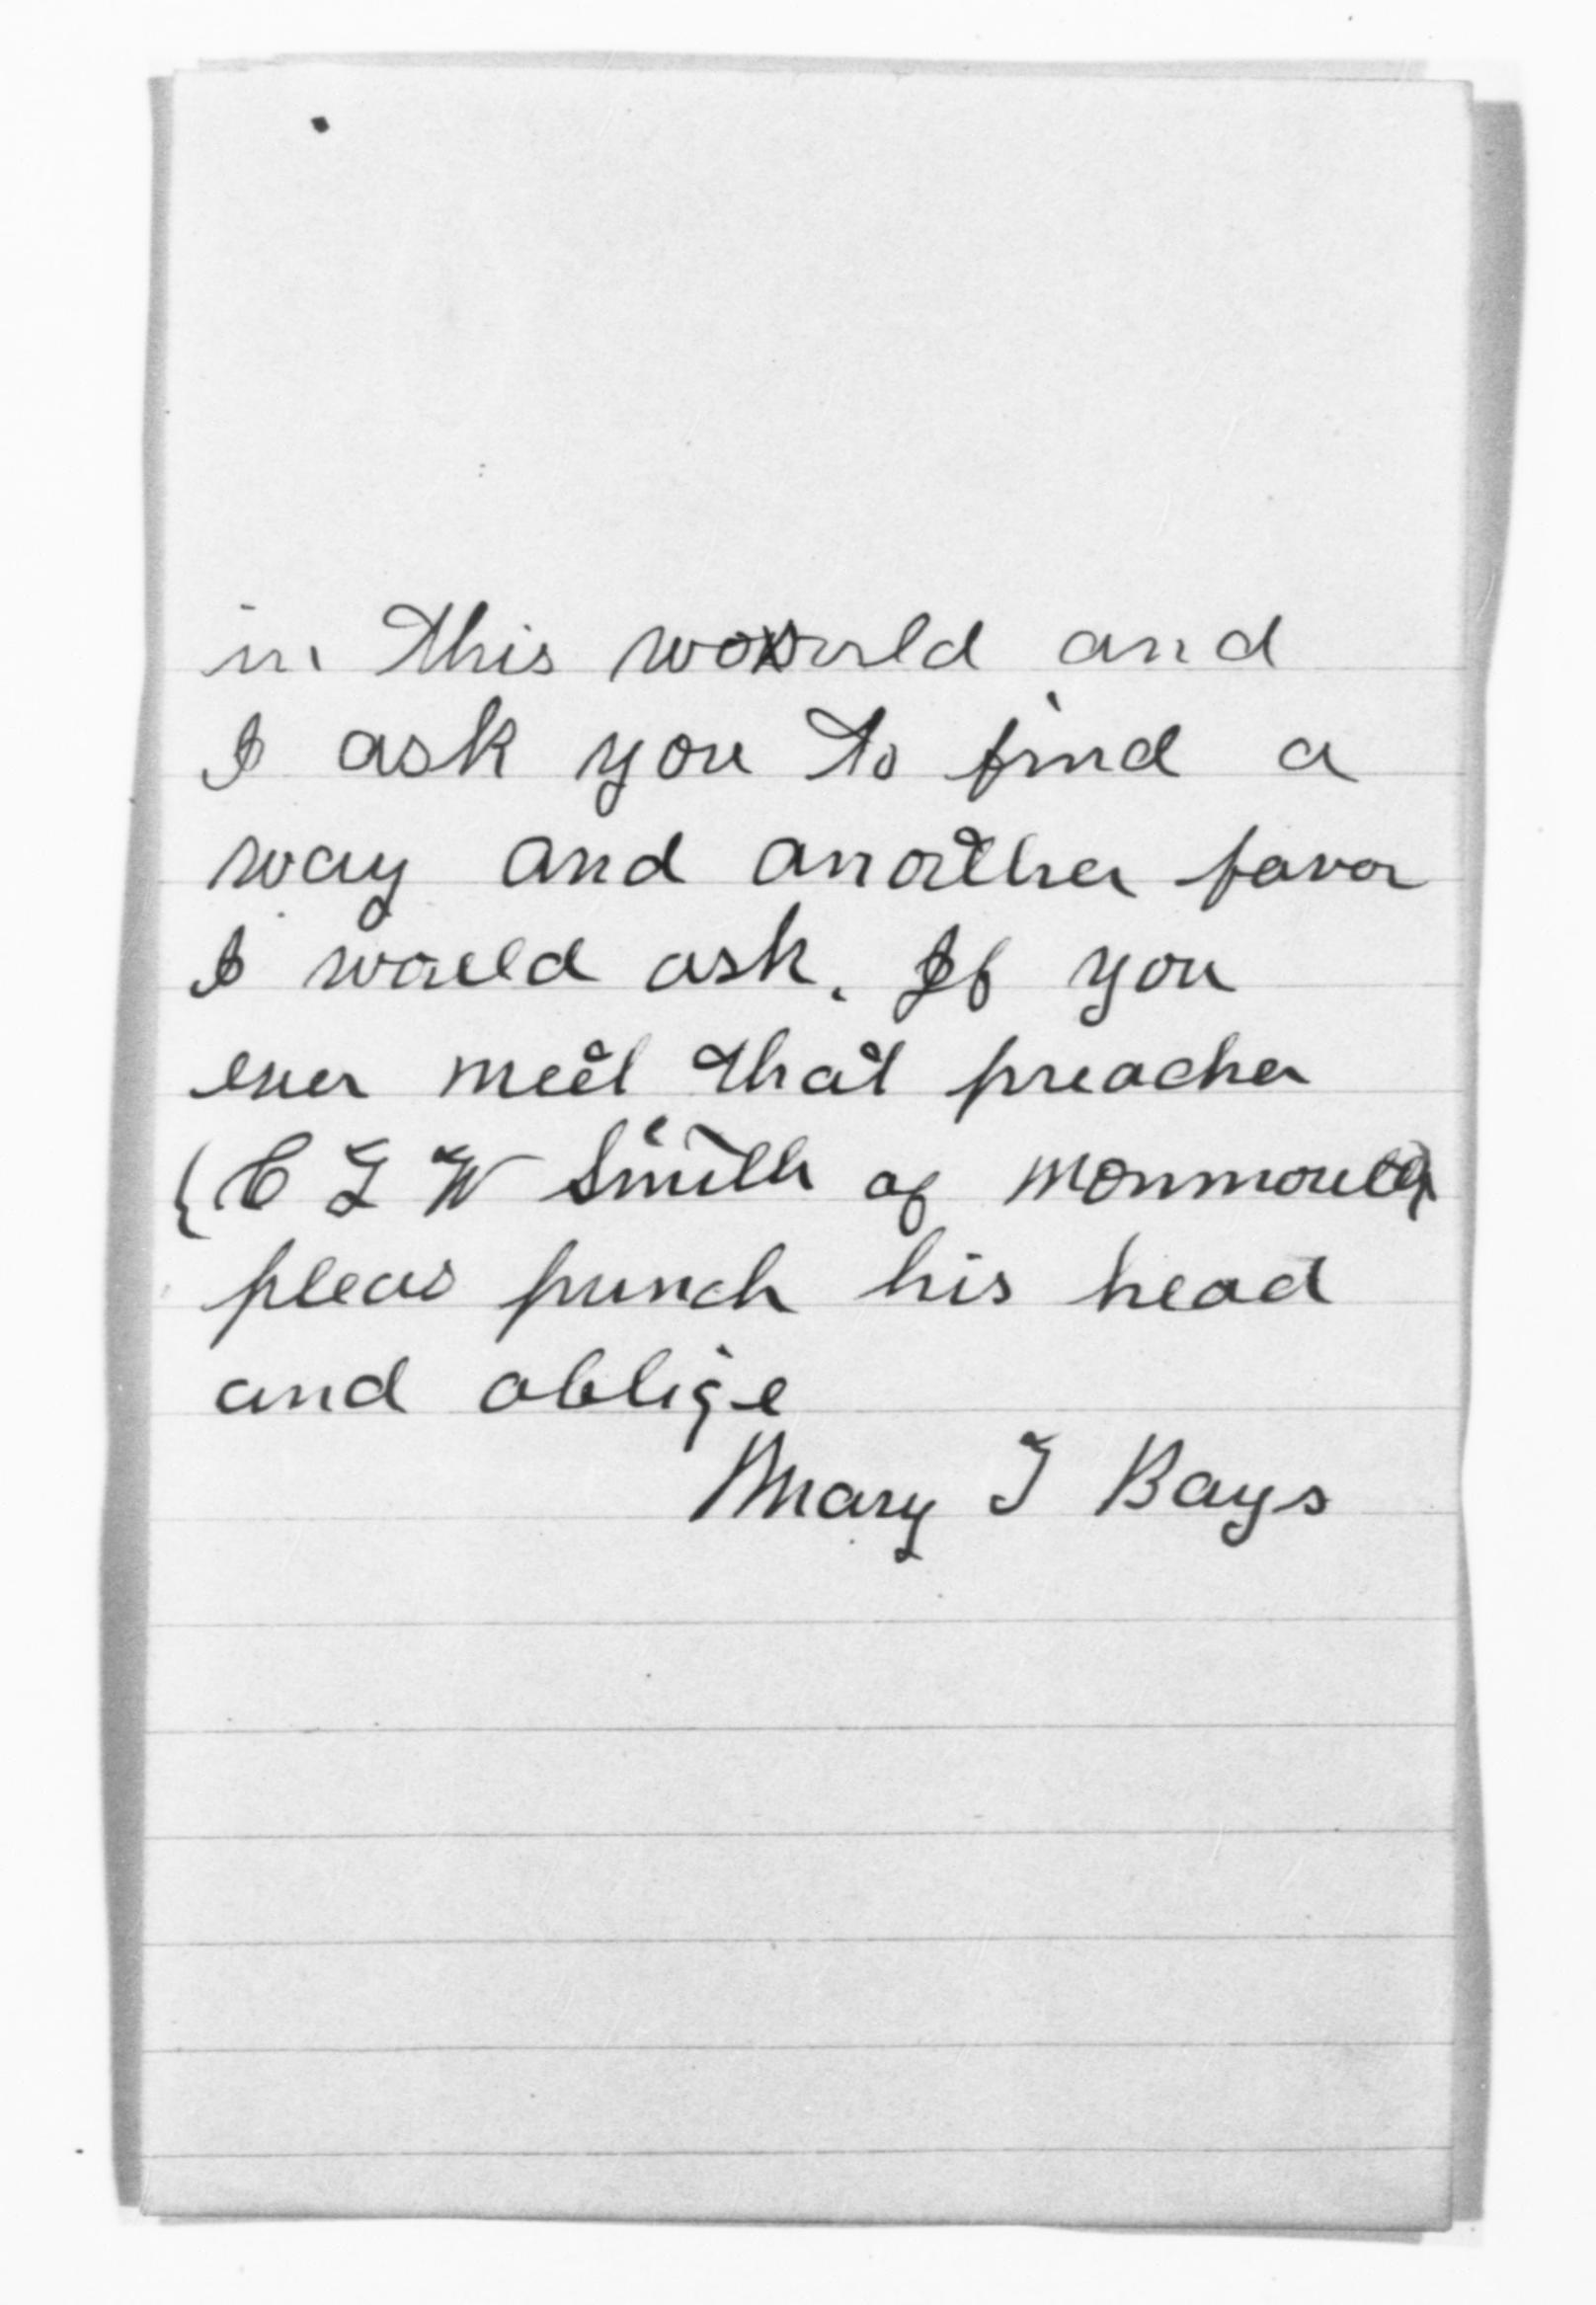 in this world and
I ask you to find a
way and another favor
I would ask. If you
ever meet that preacher
(C G W Smith of Monmouth)
pleas punch his head
and oblige
Mary J Bays